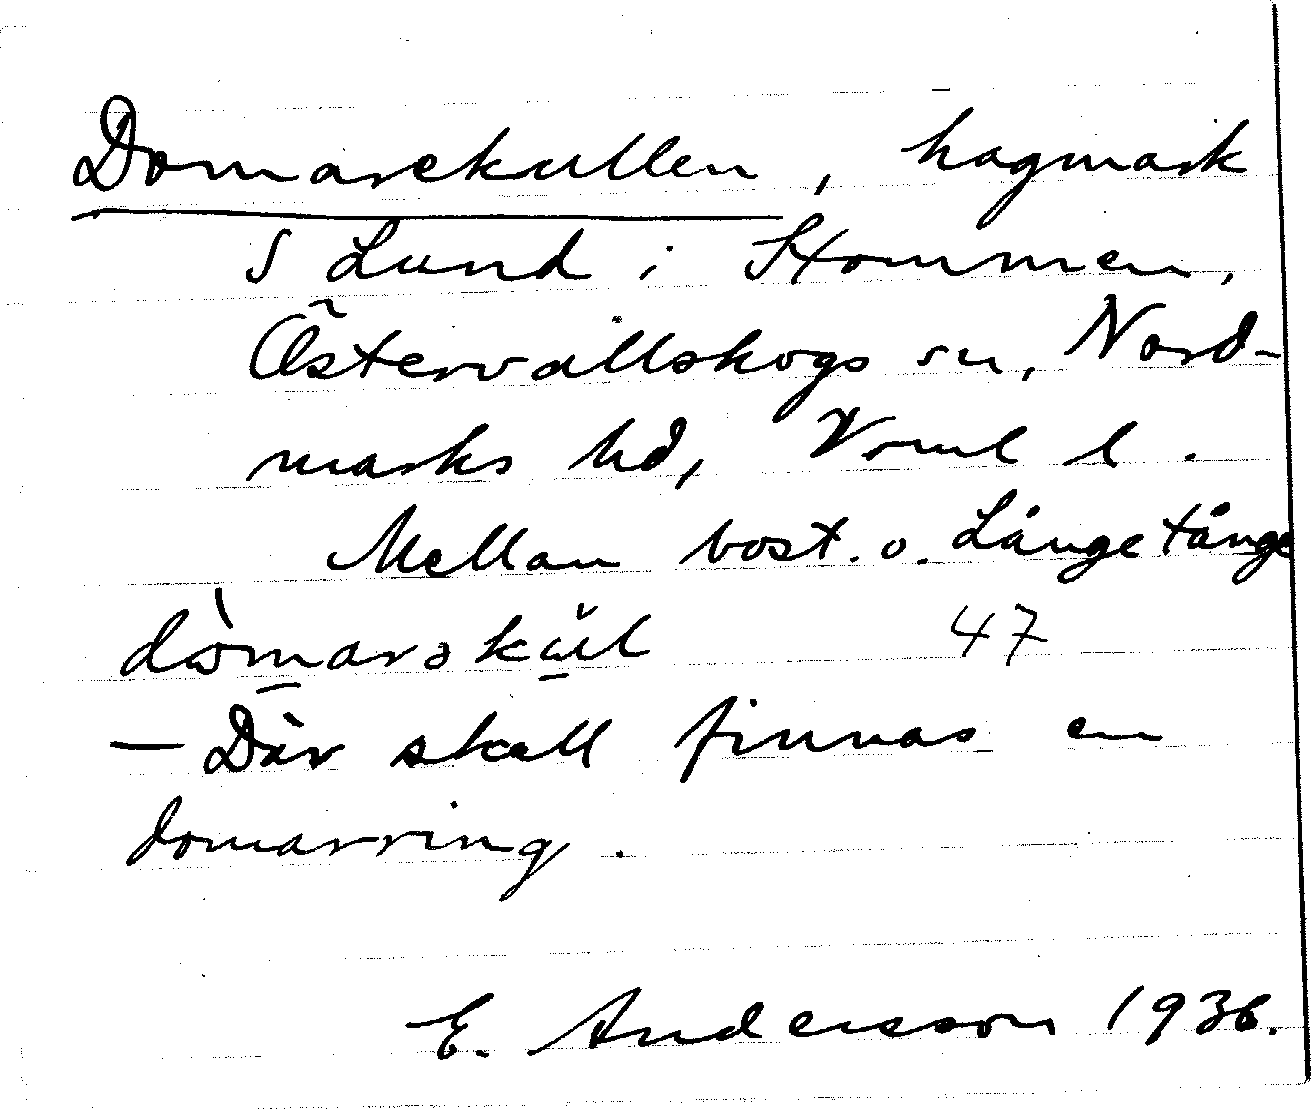 Domarekullen, hagmark
S Lund i Stommen,
Östervallskogs sn, Nord-
marks hd, Vrml l.
Mellan bost. o. Långetånge
47
— Där skall finnas en
domarring.
E. Andersson 1936.